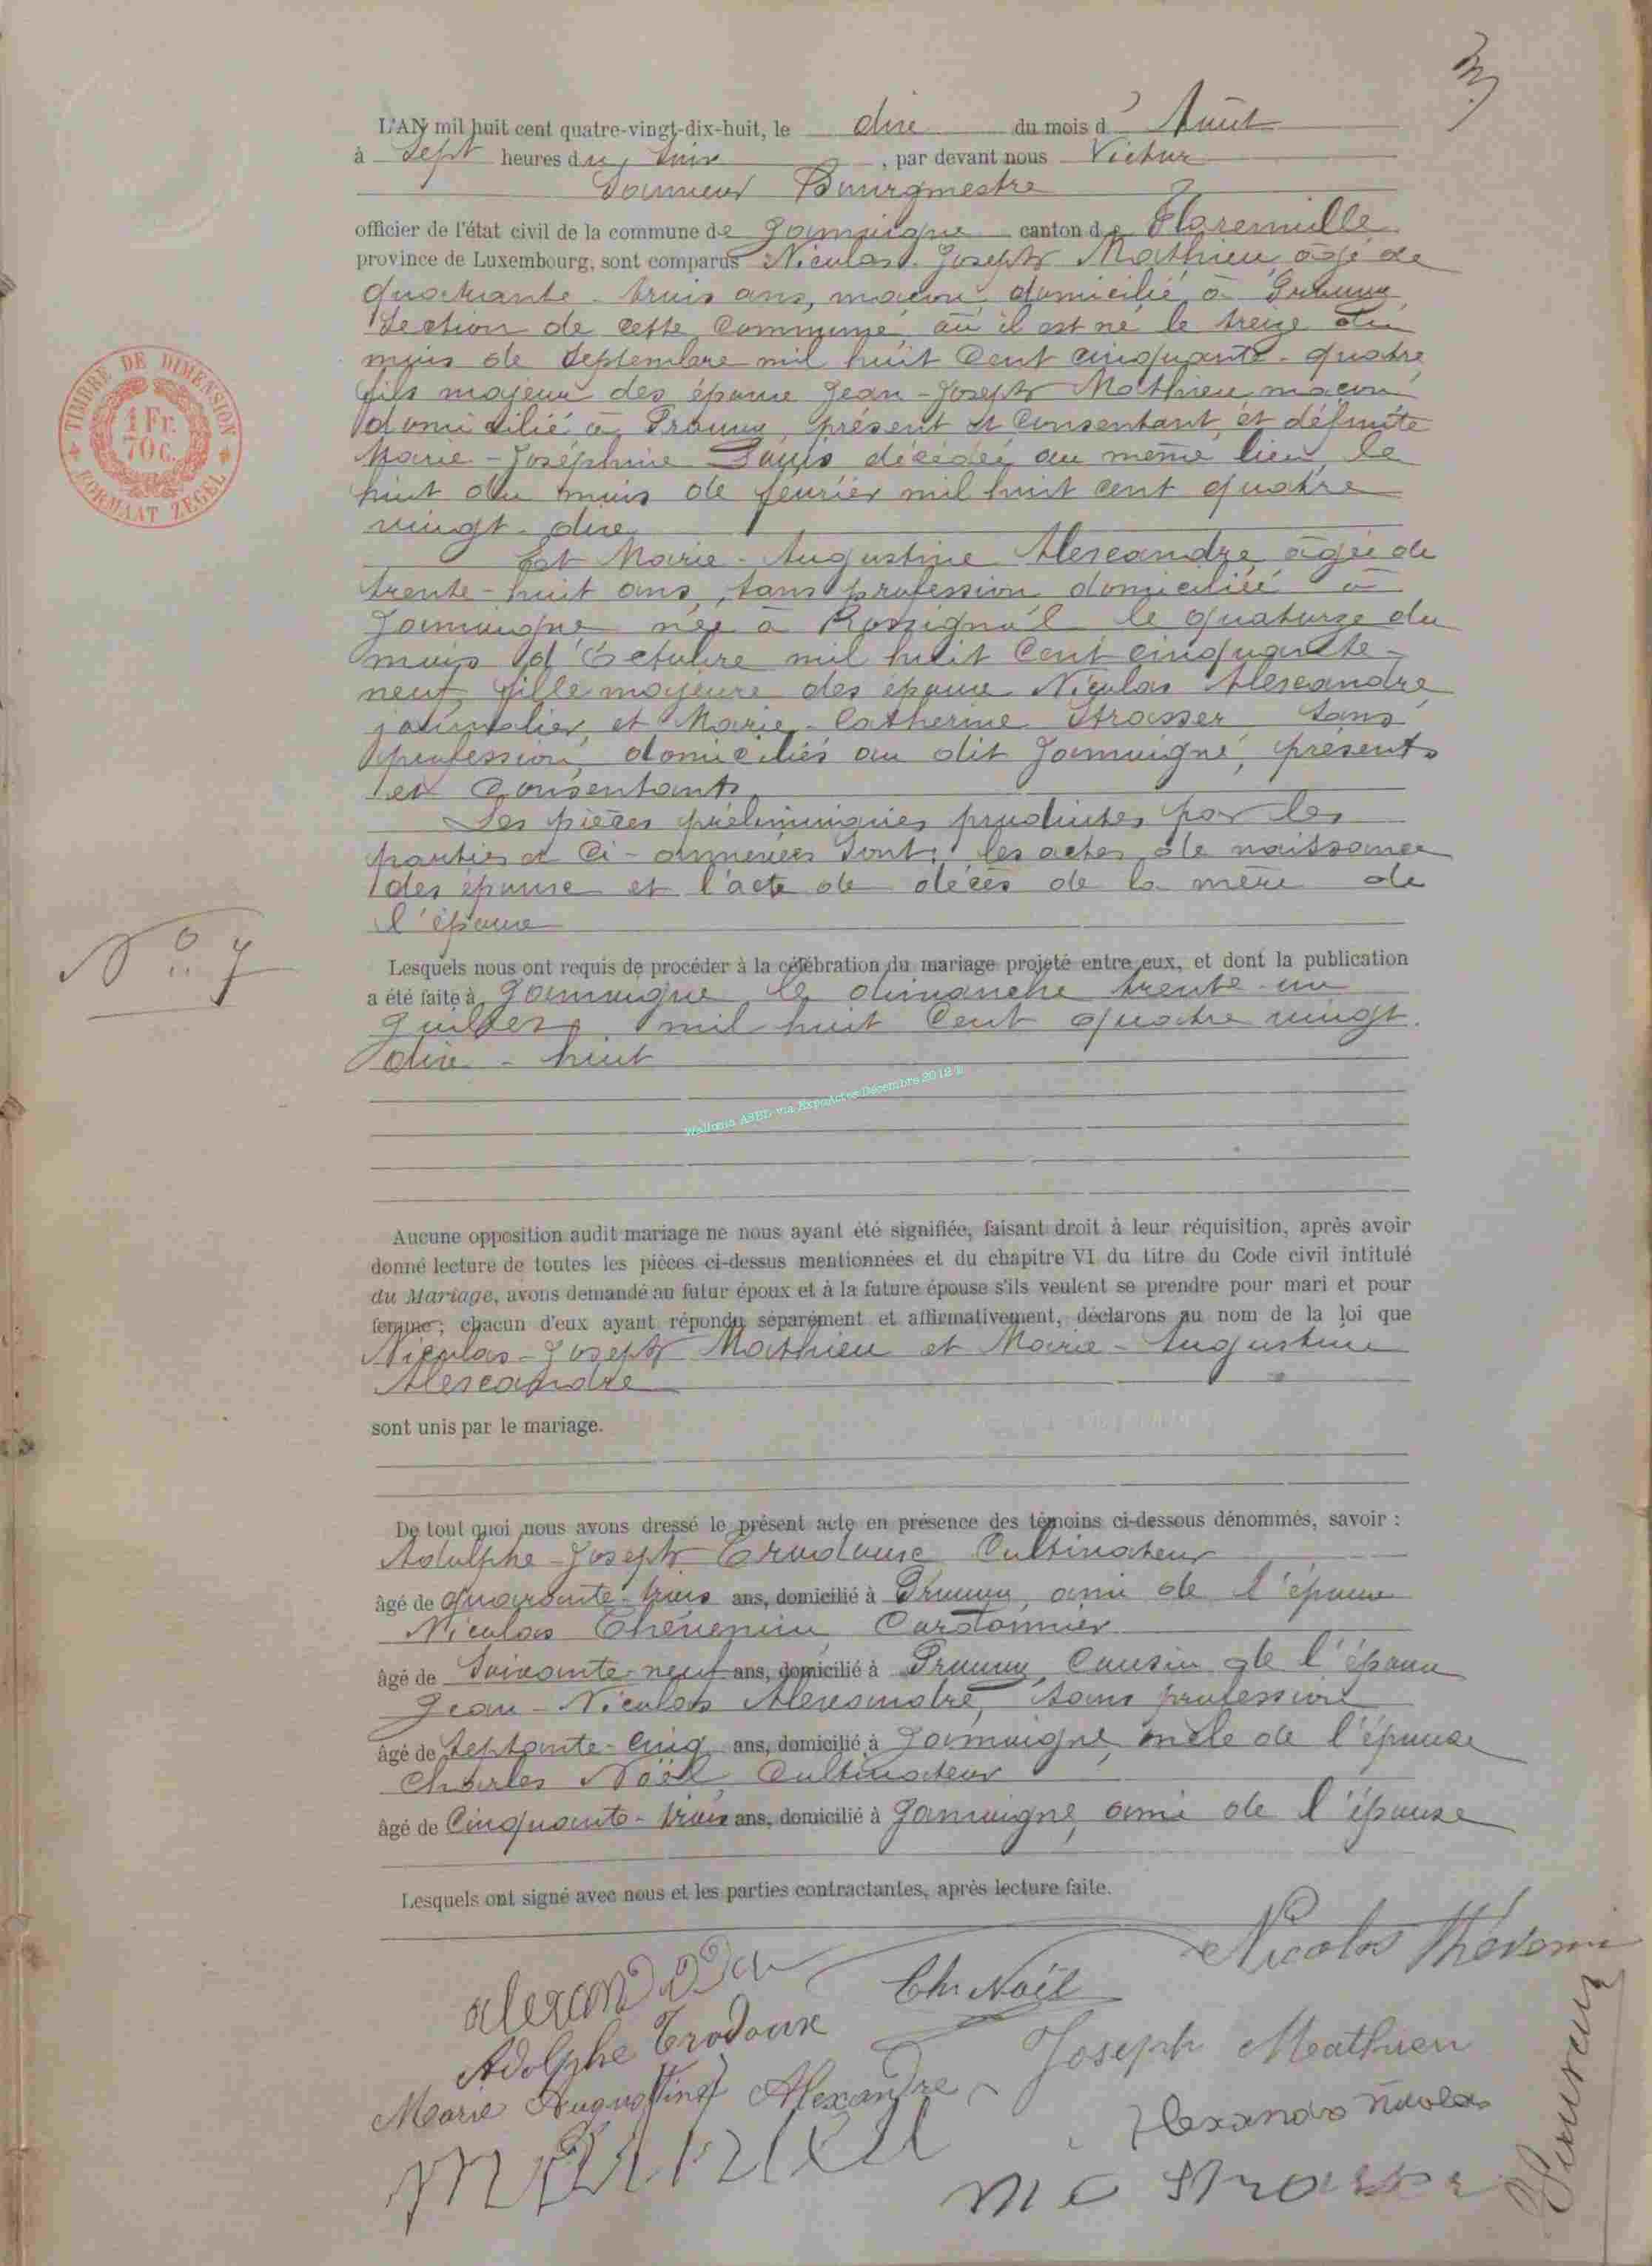 3
L'AN mil huit cent quatre-vingt-dix-huit, le dix du mois d'Août
à Sept heures du soir, par devant nous Victor
Bourgmestre
officier de l'état civil de la commune de Jamoigne canton de Florenville
province de Luxembourg, sont comparus Nicolas-Joseph Mathieu, âgé de
quarante-trois ans, maçon, domicilié à Prouvy
Section de cette Commune, où il est né le treize du
mois de Septembre mil huit Cent cinquante-quatre,
fils majeur des époux Jean-Joseph Mathieu, maçon
domicilié à Prouvy, présent et Consentant, et défunte
Marie-Joséphine décédée au même lieu, le
huit du mois de février mil huit cent quatre
vingt-dix
Et Marie-Augustine Alexandre, âgée de
trente-huit ans, sans profession domiciliée à
Jamoigne, née à Rossignol le quatorze du
mois d'Octobre mil huit Cent cinquante-
neuf, fille majeure des époux Nicolas Alexandre
journalier, et Marie-Catherine Strasser sans
profession, domiciliés au dit Jamoigne, présents
et Consentants
Les pièces préliminaires produites par les
parties et Ci-annexées sont: les actes de naissance
des époux et l'acte de décès de la mère de
l'époux
N° 7
Lesquels nous ont requis de procéder à la célébration du mariage projeté entre eux, et dont la publication
a été faite à Jamoigne le dimanche trente-un
Juillet, mil huit Cent quatre vingt
dix-huit
Wallonia ASBL via ExpoActes Décembre 2012
Aucune opposition audit mariage ne nous ayant été signifiée, faisant droit à leur réquisition, après avoir
donné lecture de toutes les pièces ci-dessus mentionnées et du chapitre VI du titre du Code civil intitulé
du Mariage, avons demandé au futur époux et à la future épouse s'ils veulent se prendre pour mari et pour
femme; chacun d'eux ayant répondu séparément et affirmativement, déclarons au nom de la loi que
Nicolas-Joseph Mathieu et Marie-Augustine
Alexandre
sont unis par le mariage.
De tout quoi nous avons dressé le présent acte en présence des témoins ci-dessous dénommés, savoir :
Adolphe-Joseph Trodoux, Cultivateur
âgé de quarante-trois ans, domicilié à Prouvy, ami de l'époux
Nicolas Thévenin, Cantonnier
âgé de Soixante-neuf ans, domicilié à Prouvy, Cousin de l'époux
Jean-Nicolas Alexandre, sans profession
âgé de Septante-Cinq ans, domicilié à Jamoigne, de l'épouse
Charles Noël, Cultivateur
âgé de Cinquante-trois ans, domicilié à Jamoigne, ami de l'épouse
Lesquels ont signé avec nous et les parties contractantes, après lecture faite.
Nicolas Thévenin
Ch Noël
Adolphe Trodoux
Joseph Mathieu
Marie Augustine Alexandre
Alexandre Nicolas
M C Strasser
TIMBRE DE DIMENSION
1 Fr.
70 C.
FORMAAT ZEGEL